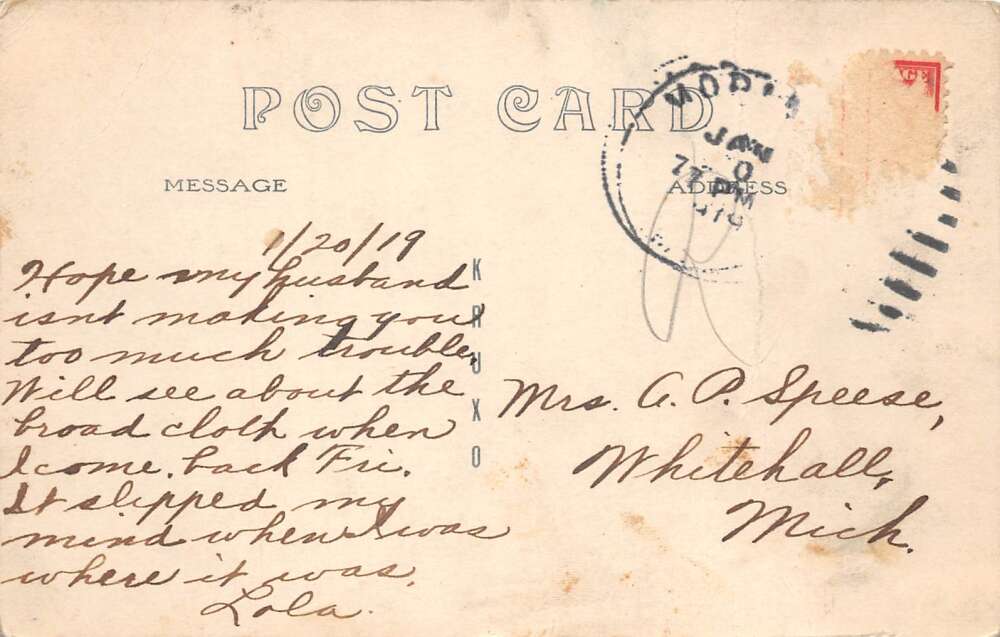 POST CARD
MESSAGE
ADDRESS
JAN
7 PM
1/20/19
Hope my husband
isnt making you
too much trouble.
Will see about the
broad cloth when
I come back Fri.
It slipped my
mind when I was
where it was.
Lola.
KRUXO
Mrs. A. P. Speese,
Whitehall,
Mich.